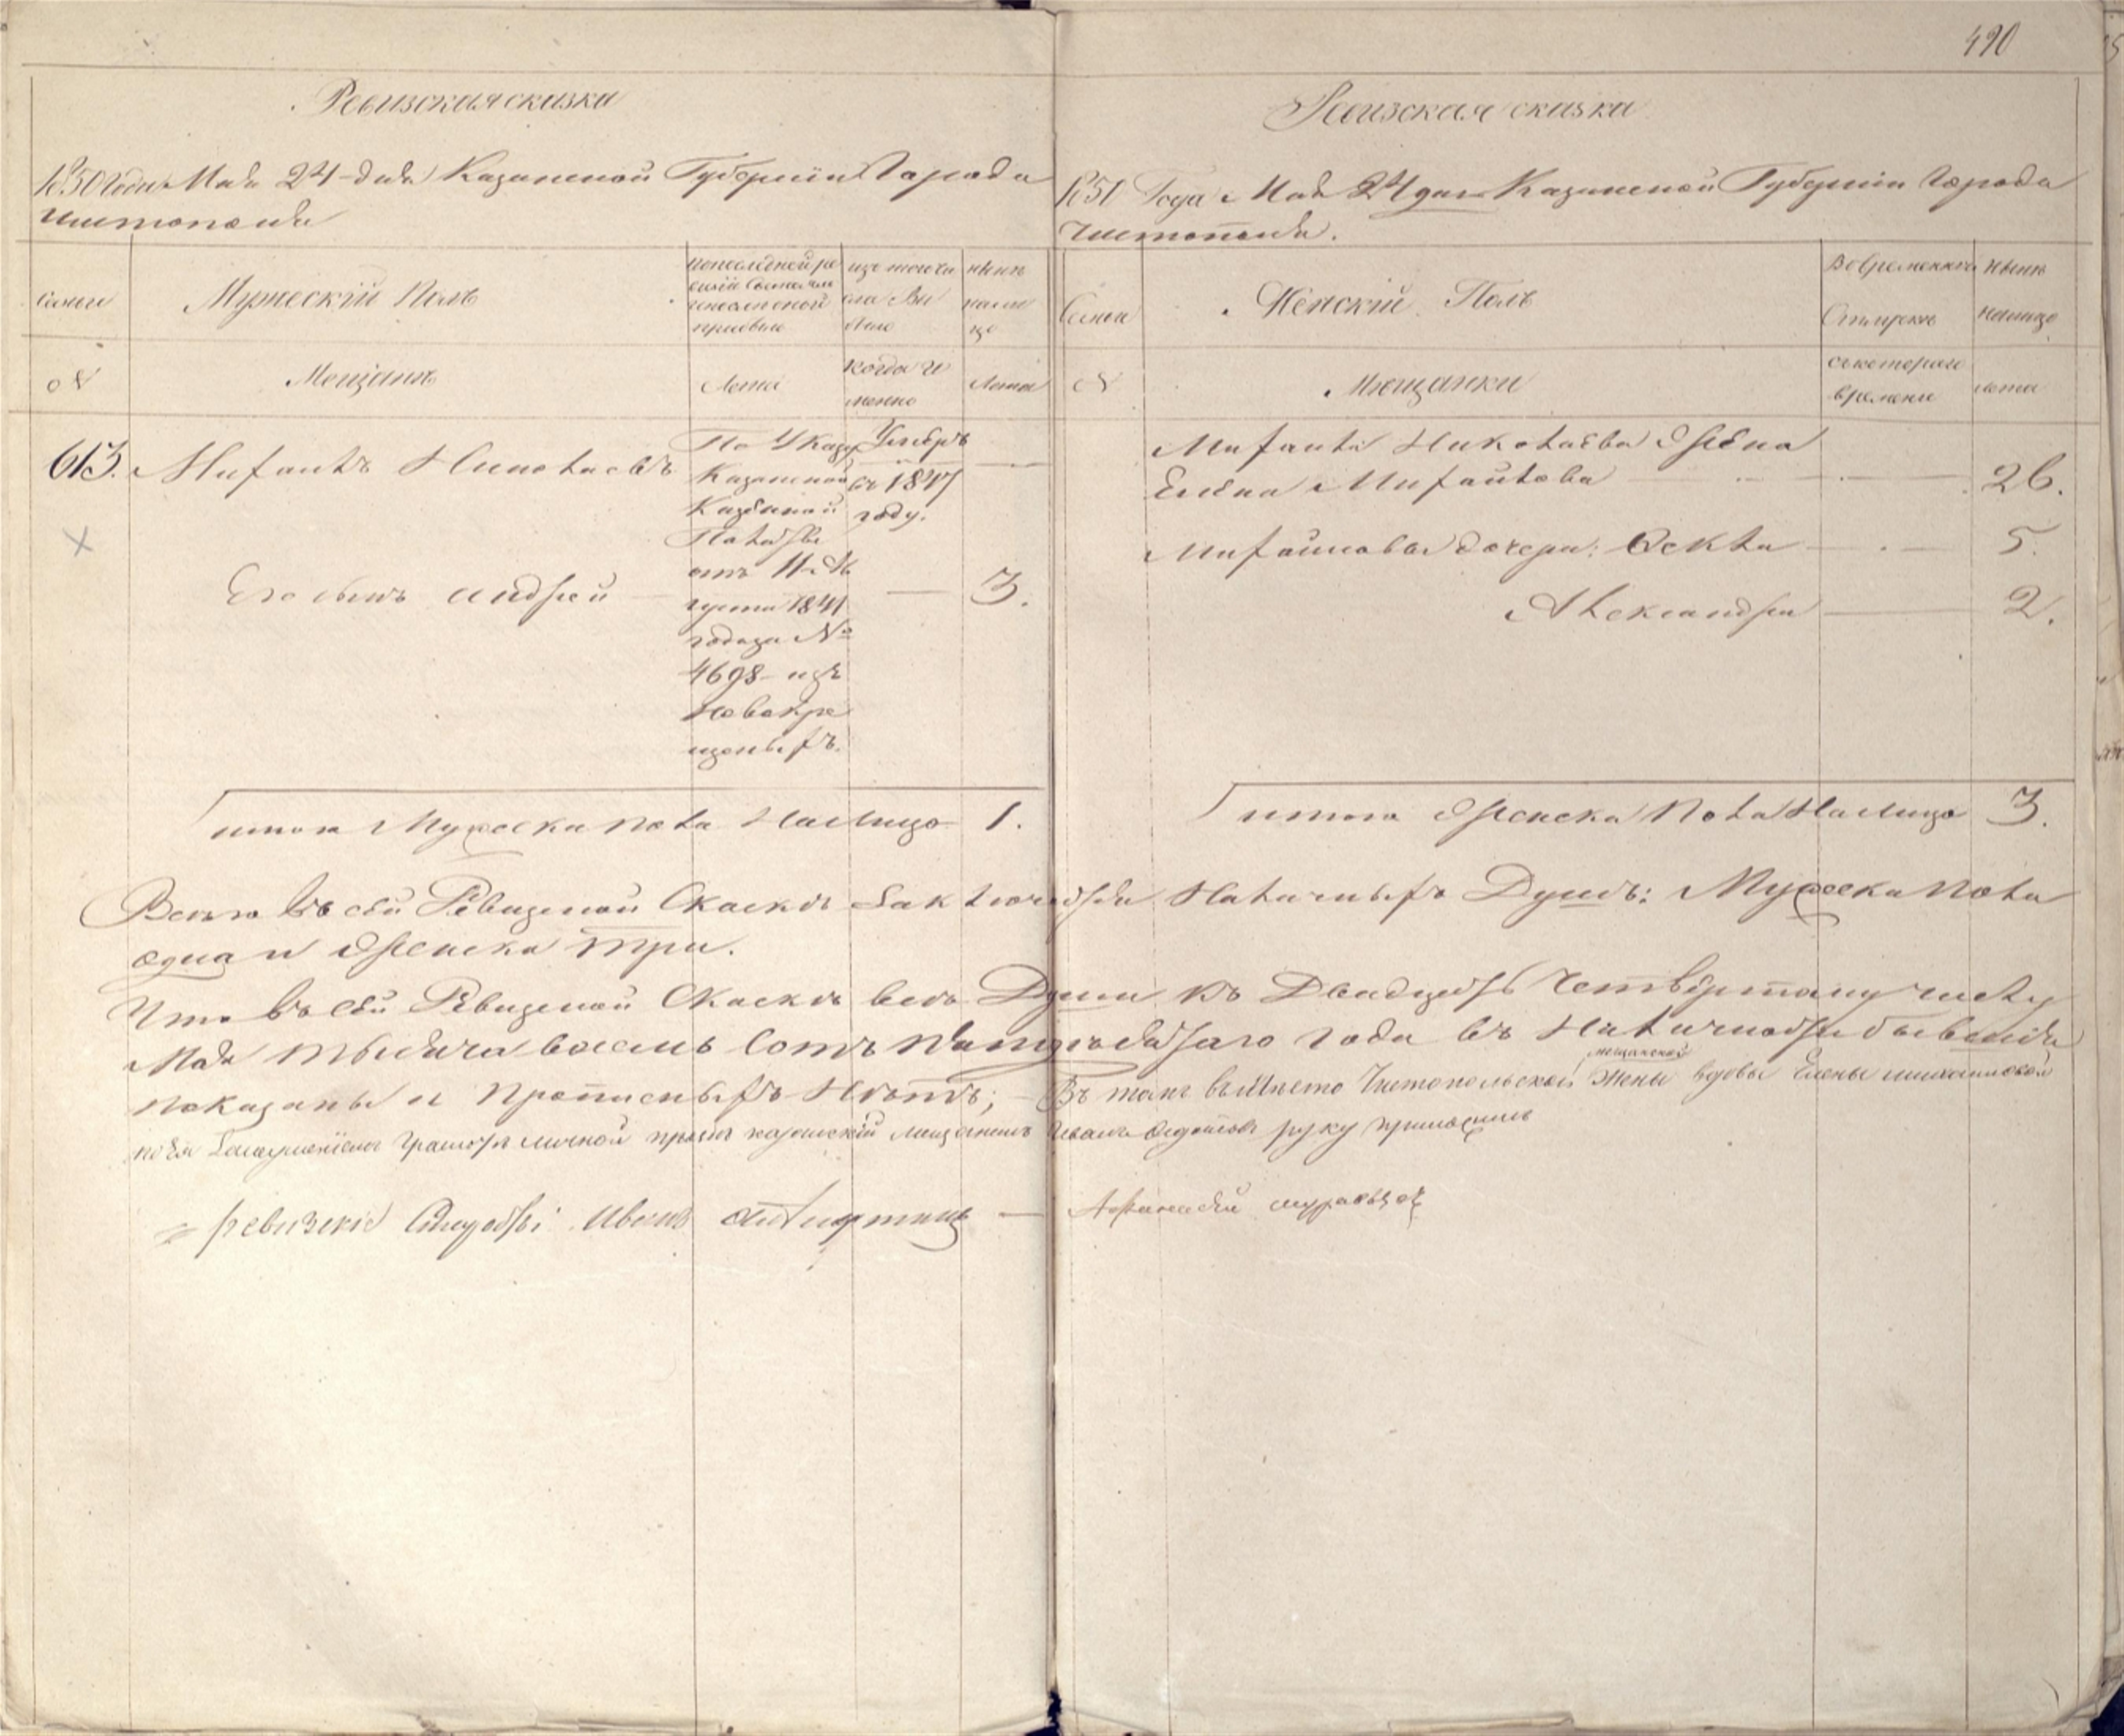 490
Ревизская сказка
1850 Года Мая 24 дня Казанской Губернии Города
Чистополя
Семьи
Мужеский Полъ
по последней ре
визіи состояло
или после оной
прибыло
изъ того чи
сла вы
было
ныне
на ли
цо
№
Мещане
Лета
когда и
менно
Лета
613. Михаилъ Николаевъ
По Указу
Казанской
Казенной
Палаты
отъ 11 Ав
густа 1841
года за №
4698 изъ
Новокре
щеныхъ.
Умеръ
въ 1847
году.
Его сынъ Андрей 3.
итого Мужеска пола На лицо 1.
Ревизская сказка
1850 Года Мая 24 дня Казанской Губерніи Города
Чистополя.
Семьи
Женскій Полъ
Во временной
Отлучке
ныне
налицо
№
Мещанки
съ котораго
времени
лета
Михаила Николаева Жена
Елена Михайлова 26.
Михайловы дочери: Фекла 5.
Александра 2.
итого Женска Пола На лицо 3.
Всего въ сей Ревизской Сказке заключается Наличныхъ Душъ: Мужеска пола
одна и Женска три.
Что въ сей Ревизской Сказке все Души къ Двадцать Четвертому числу
Мая тысяча восемь сотъ пятидесятаго года въ Наличности бывшія
показаны и Прописныхъ Нетъ; Въ томъ вместо Чистопольской мещанской Жены вдовы Елены Михайловой
за неуменіемъ грамоте личной просьбе казанскій мещанинъ Иванъ руку приложилъ
ревизскіе Иванъ